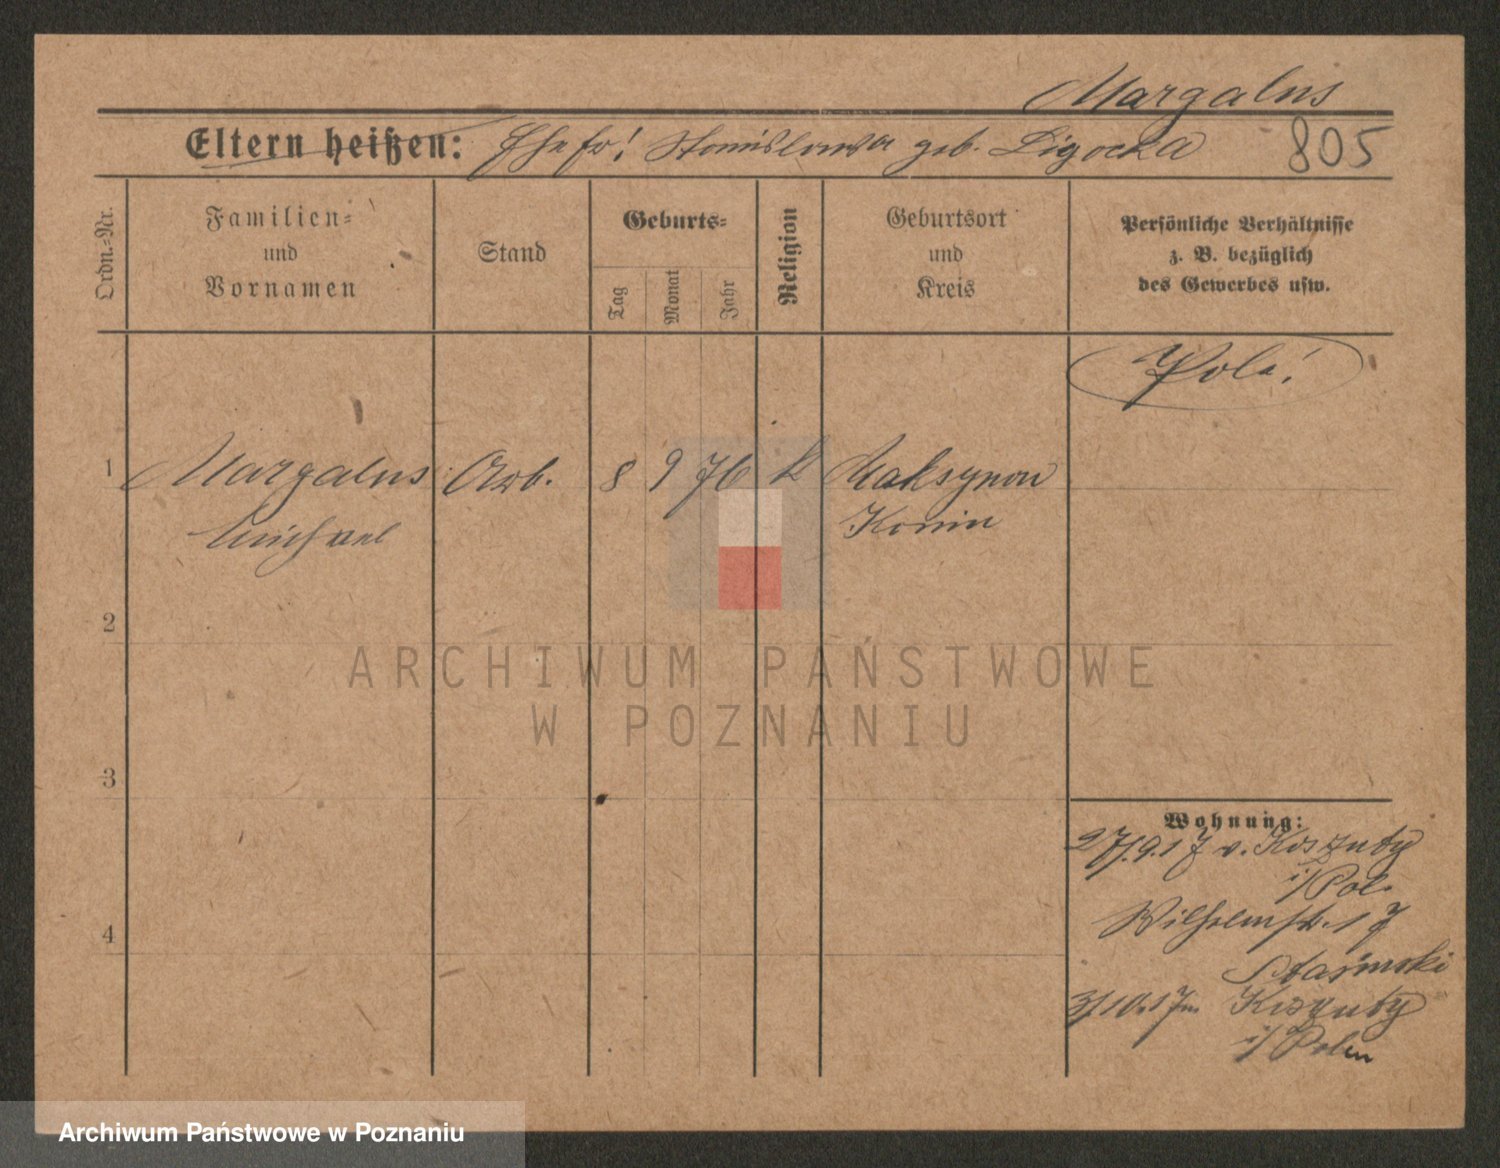 Margalus
Eltern heißen: Ehefr! Stanislawa geb. Ligocka 805
Ordn.-Nr.
Familien-
und
Vornamen
Stand
Geburts-
Tag
Monat
Jahr
Religion
Geburtsort
und
Kreis
Persönliche Verhältnisse
z. B. bezüglich
des Gewerbes usw.
Pole!
1 Margalus Arb. 8 9 76 k Maksymon
Michael Konin
2
3
4
Wohnung:
27/.9.17 v. Koszuty
i/Pol.
Wilhelmstr. 17
Stasinski
3/10.17 n. Koszuty
i/Polen
ARCHIWUM PAŃSTWOWE
W POZNANIU
Archiwum Państwowe w Poznaniu